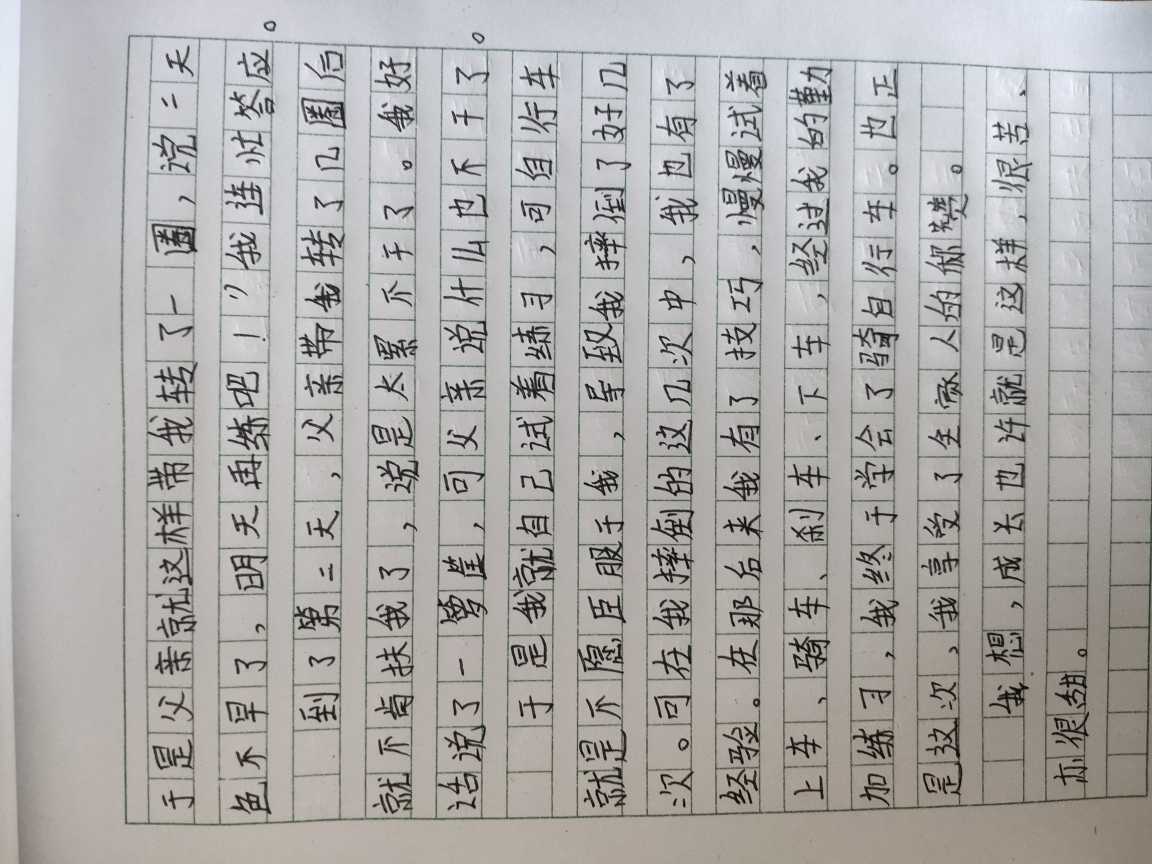 于是父亲就这样带我转了一圈，说：“天
色不早了，明天再练吧！”我连忙答应。
到了第二天，父亲带我转了几圈后
就不肯扶我了，说是太累不干了。我好
话说了一箩筐，可父亲说什么也不干了。
于是我就自己试着练习，可自行车
就是不愿臣服于我，导致我摔倒了好几
次。可在我摔倒的这几次中，我也有了
经验。在那后来我有了技巧，慢慢试着
上车、骑车、刹车、下车，经过我的勤
加练习，我终于学会了骑自行车。也正
是这次，我享受了全家人的称赞。
我想，成长也许就是这样，很苦、
亦很甜。